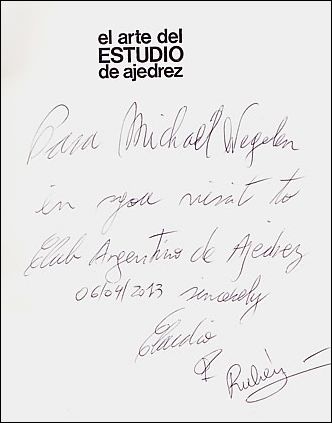 el arte del
ESTUDIO
de ajedrez
Para Michael Negelen
in you visit to
Club Argentino de Ajedrez
06/04/2013 sincerely
Claudio
P Rubén